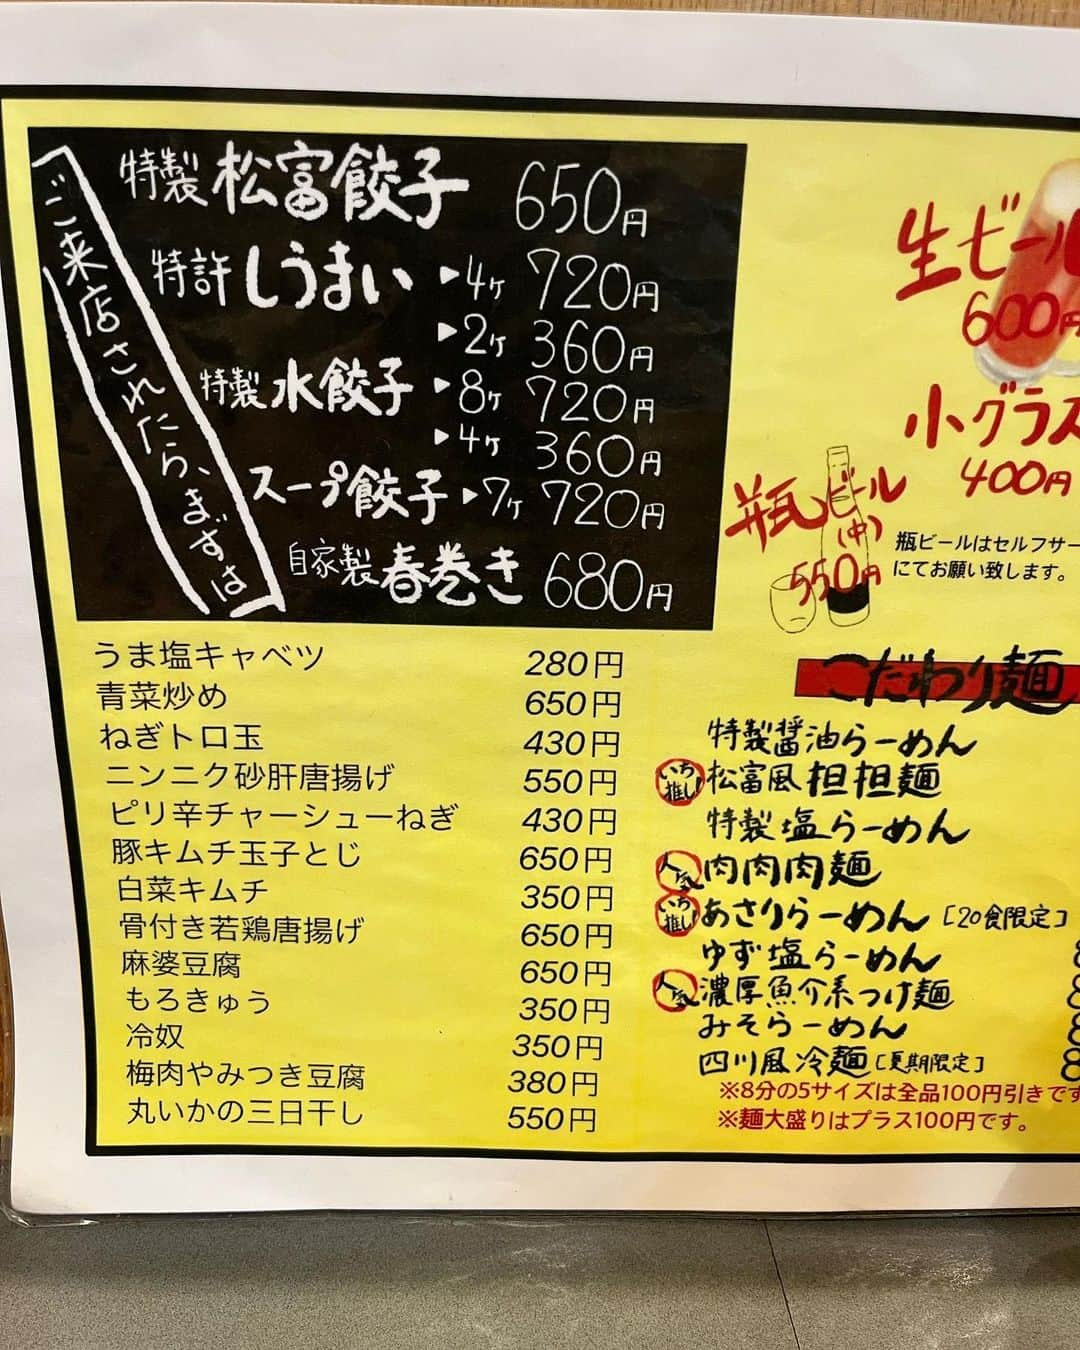 ご来店されたら、まずは
特製 松富餃子 650円
特許 しうまい ▶4ヶ 720円
▶2ヶ 360円
特製 水餃子 ▶8ヶ 720円
▶4ヶ 360円
スープ餃子 ▶7ヶ 720円
自家製 春巻き 680円
うま塩キャベツ 280円
青菜炒め 650円
ねぎトロ玉 430円
ニンニク砂肝唐揚げ 550円
ピリ辛チャーシューねぎ 430円
豚キムチ玉子とじ 650円
白菜キムチ 350円
骨付き若鶏唐揚げ 650円
麻婆豆腐 650円
もろきゅう 350円
冷奴 350円
梅肉やみつき豆腐 380円
丸いかの三日干し 550円
生ビール
600円
小グラス
400円
瓶ビール
(中)
550円
瓶ビールはセルフサー
にてお願い致します。
こだわり麺
特製醤油らーめん
いち推し! 松富風担担麺
特製塩らーめん
人気 肉肉肉麺
いち推し! あさりらーめん [20食限定]
ゆず塩らーめん
人気 濃厚魚介系つけ麺
みそらーめん
四川風冷麺 [夏期限定]
※8分の5サイズは全品100円引きです
※麺大盛りはプラス100円です。